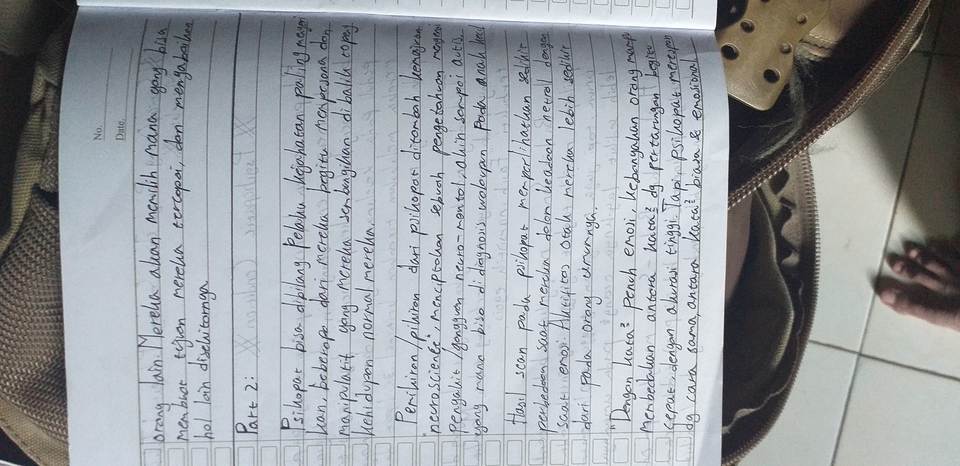 No.
Date.
orang lain. Mereka akan memilih mana yang bisa
membuat tujuan mereka tercapai, dan mengabaikan
hal lain disekitarnya
Part 2:
Psikopat bisa dibilang pelaku kejahatan paling
kan, beberapa dari mereka begitu mempesona dan
manipulatif yang mereka sembunyikan dibalik topeng
kehidupan normal mereka.
Pemikiran/pikiran dari psikopat ditambah kemajuan
"neuroscience", menciptakan sebuah pengetahuan
penyakit/gangguan neuro-mental,
yang mana bisa di diagnosis walaupun pada anak kecil
Hasil scan pada psikopat memperlihatkan sedikit
perbedaan saat mereka dalam keadaan netral dengan
saat emosi. Aktifitas otak mereka lebih sedikit
dari pada orang umumnya.
"Dengan kata² penuh emosi kebanyakan orang mampu
membedakan antara kata² dg pertarungan begitu
cepat dengan akurasi tinggi. Tapi psikopat merespon
dg cara sama, antara kata² biasa & emosional.